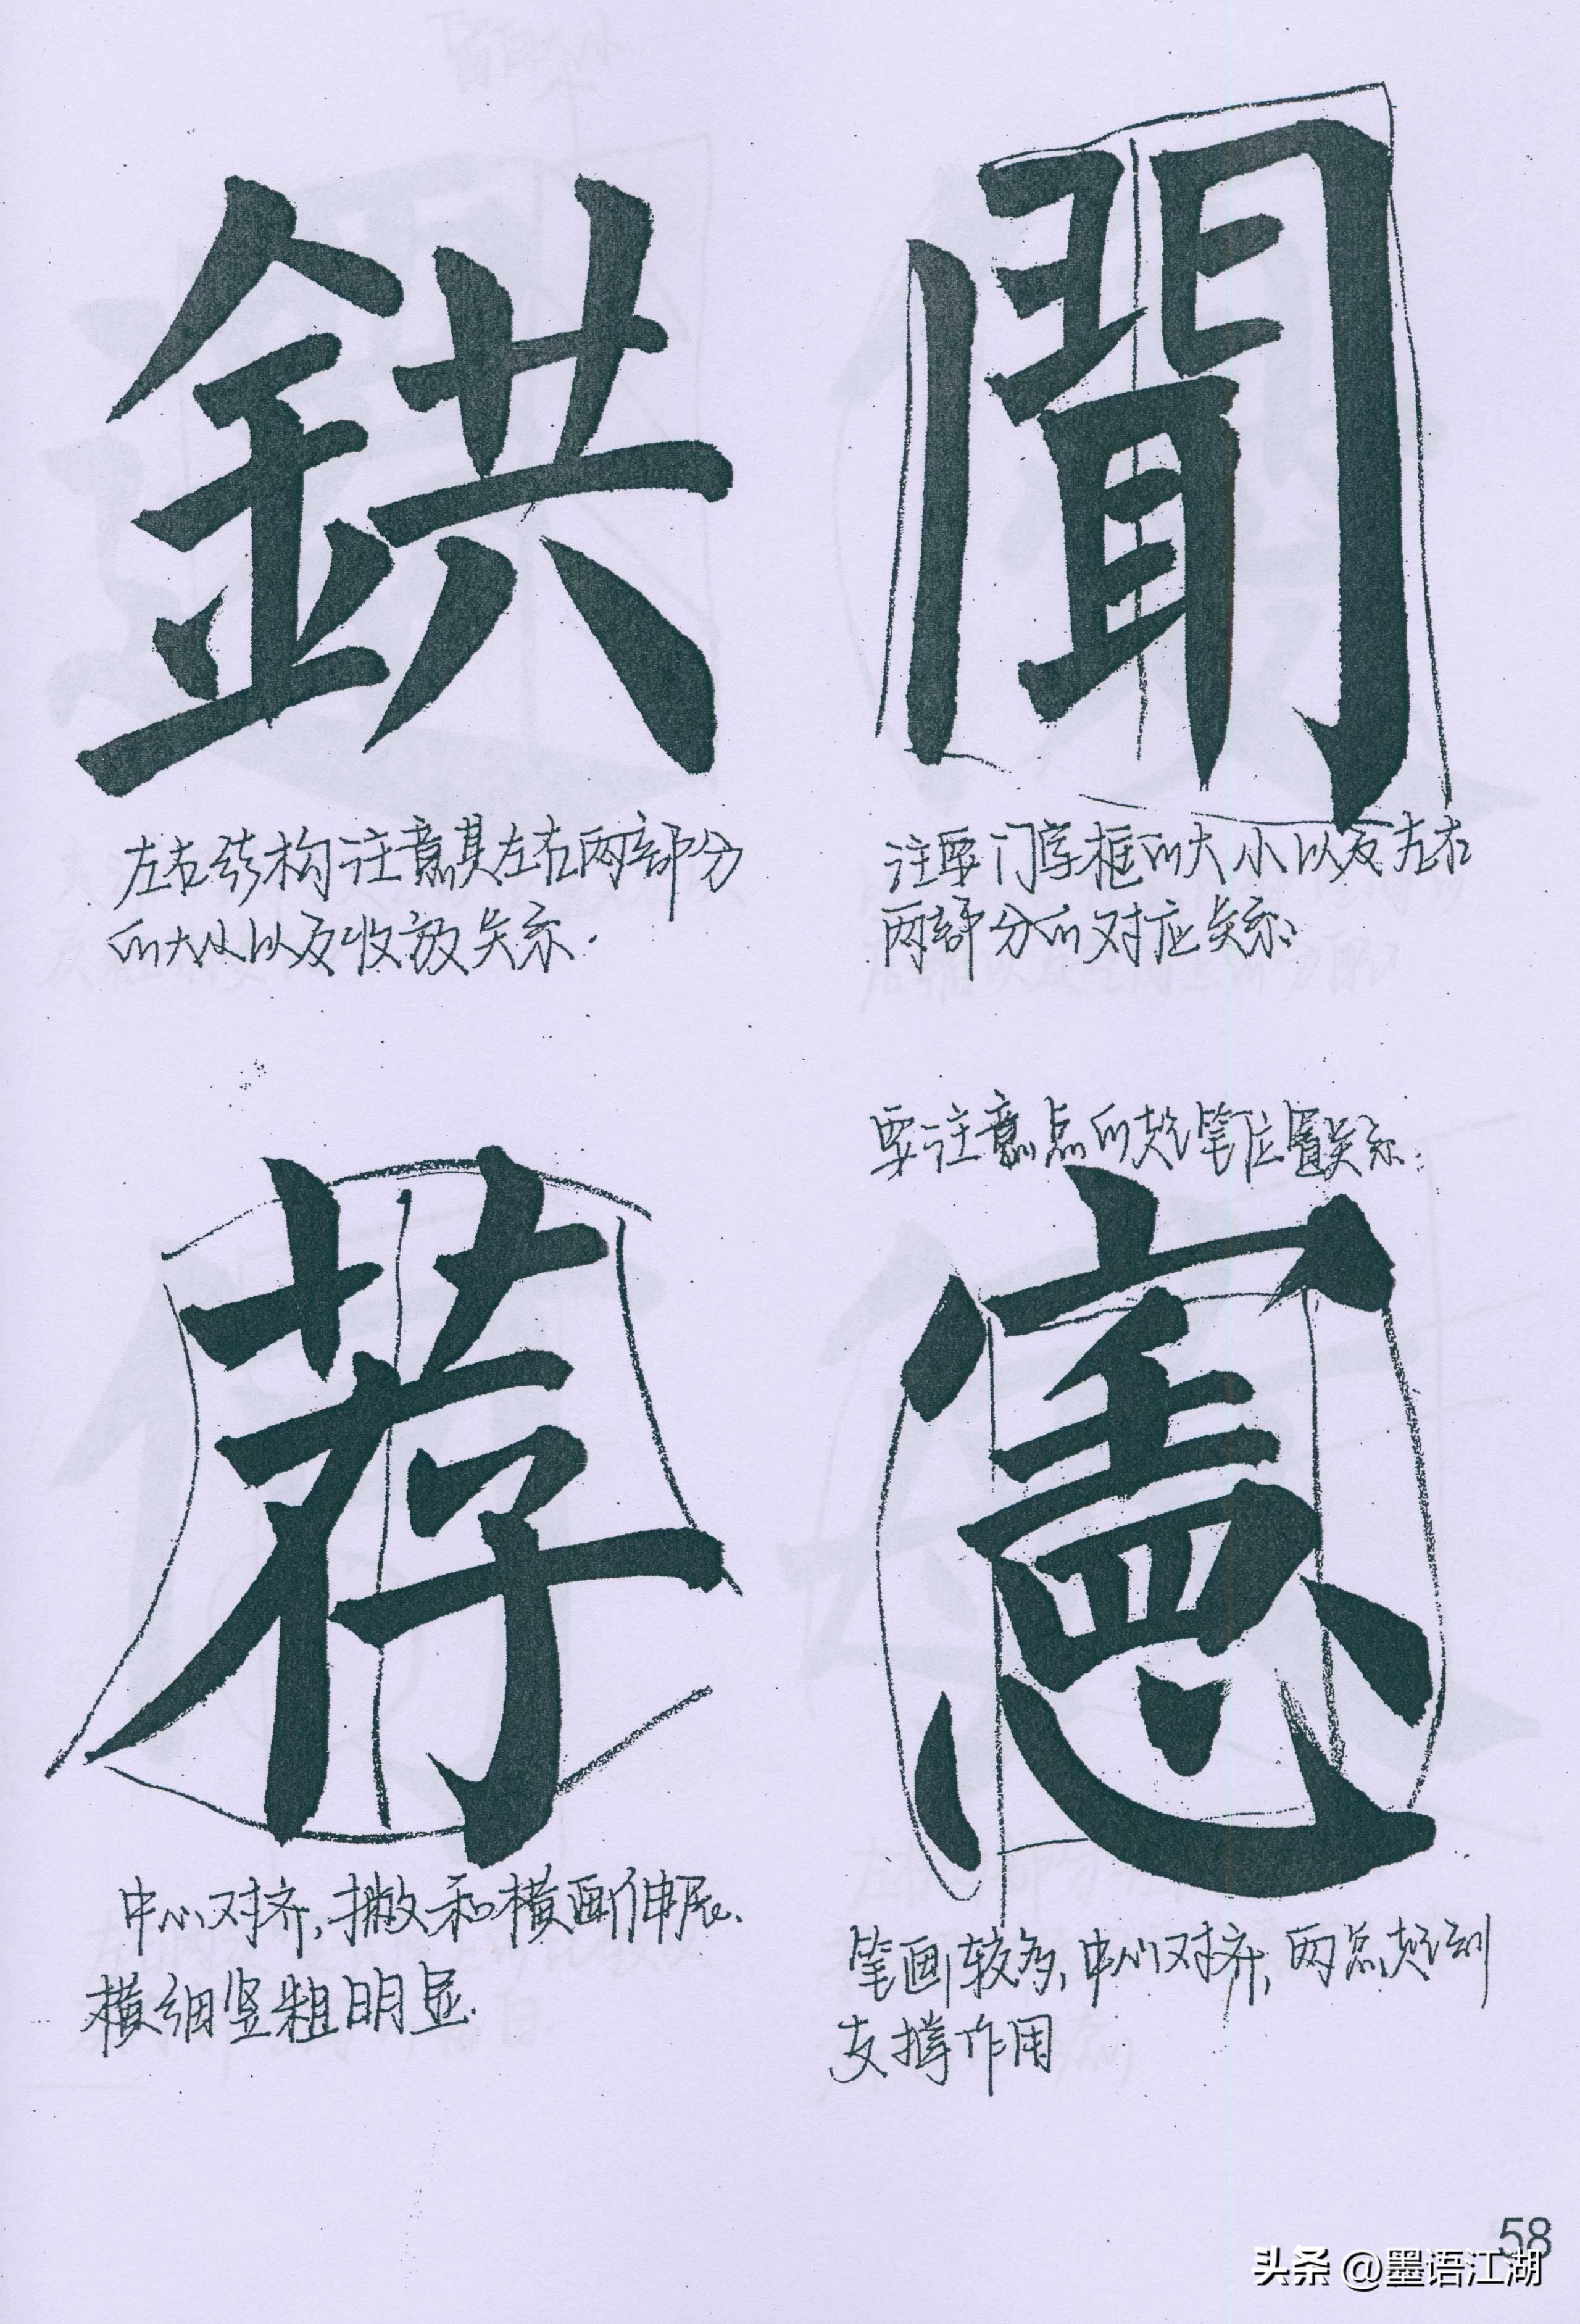 鉷
左右结构注意其左右两部分
的大小以及收放关系.
聞
注要门字框的大小以及左右
两部分的对应关系.
荐
中心对齐,撇和横画伸展.
横细竖粗明显.
要注意点的起笔位置关系.
憲
笔画较多,中心对齐,两点起到
支撑作用
58
头条 @墨语江湖